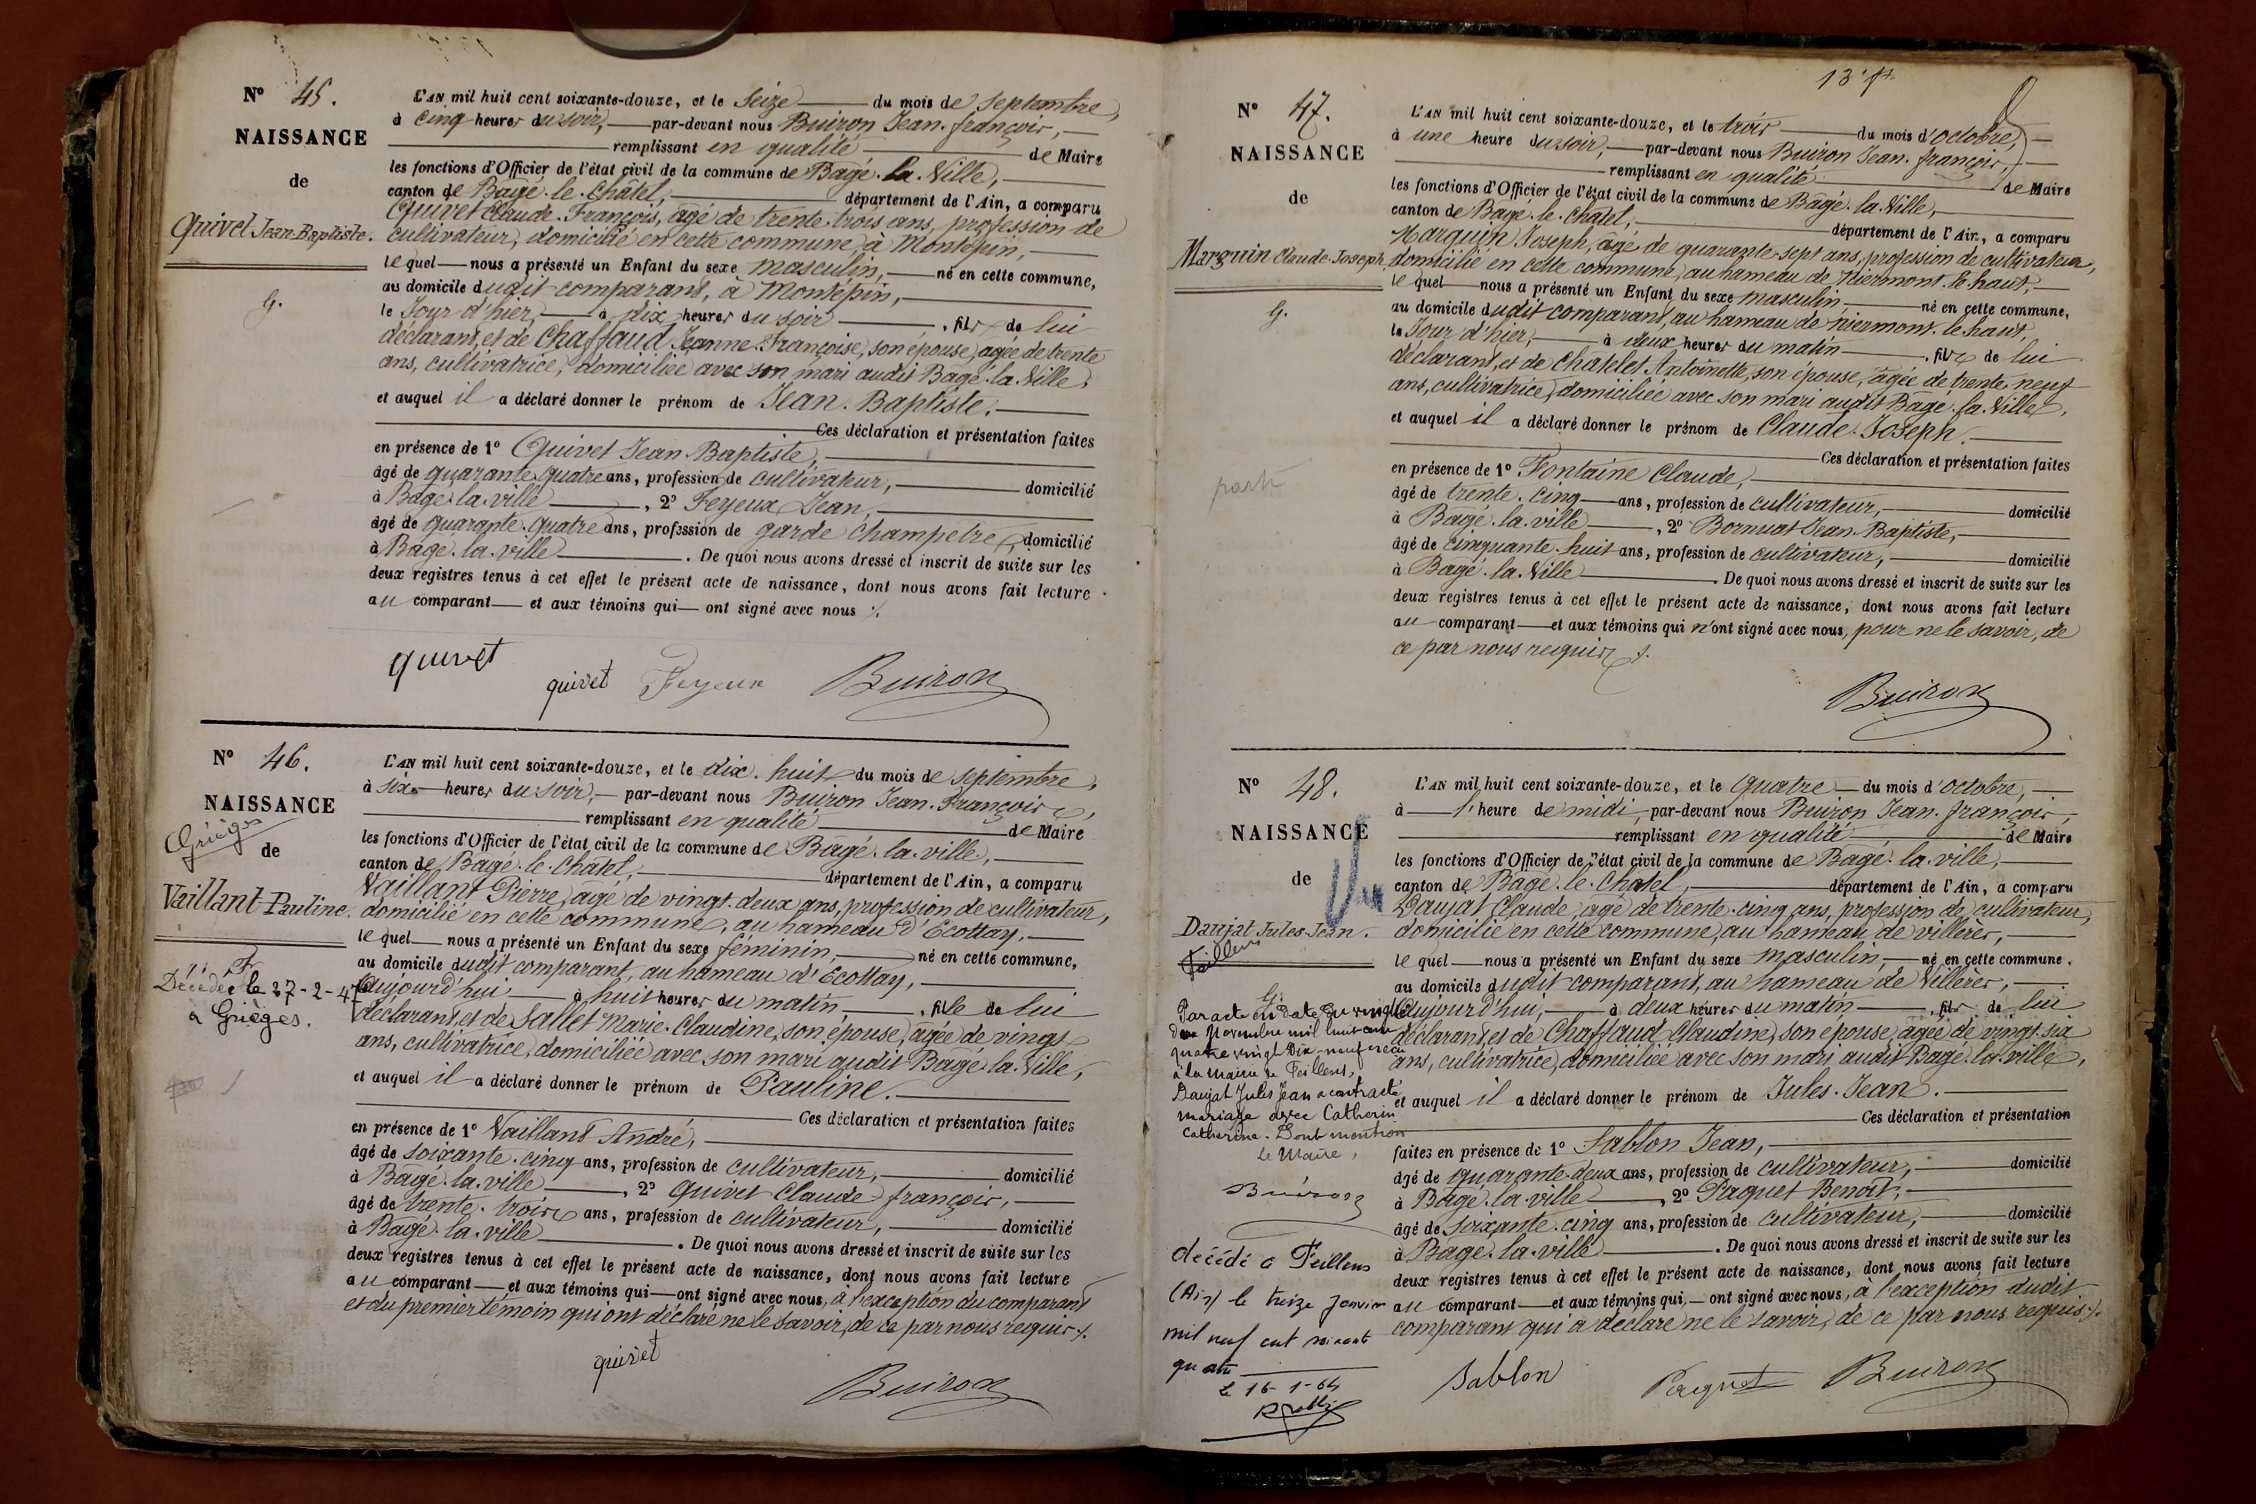 Nº 45.
NAISSANCE
de
Quivet Jean-Baptiste.
G.
L'AN mil huit cent soixante-douze, et le seize du mois de septembre,
à cinq heures du soir, par-devant nous Buiron Jean-françois,
remplissant en qualité de Maire
les fonctions d'Officier de l'état civil de la commune de Bâgé-la-Ville,
canton de Bâgé-le-Châtel, département de l'Ain, a comparu
Quivet Claude-François, âgé de trente-trois ans, profession de
cultivateur, domicilié en cette commune, à Montépin,
lequel nous a présenté un Enfant du sexe masculin, né en cette commune,
au domicile dudit comparant, à Montépin,
le Jour d'hier, à dix heures du soir, fils de lui
déclarant, et de Chaffaud Jeanne-Françoise, son épouse, âgée de trente
ans, cultivatrice, domiciliée avec son mari audit Bâgé-la-Ville,
et auquel il a déclaré donner le prénom de Jean-Baptiste.
Ces déclaration et présentation faites
en présence de 1º Quivet Jean-Baptiste,
âgé de quarante-quatre ans, profession de cultivateur, domicilié
à Bâgé-la-ville, 2º Feyeux Jean,
âgé de quarante-quatre ans, profession de garde champetre, domicilié
à Bâgé-la-ville. De quoi nous avons dressé et inscrit de suite sur les
deux registres tenus à cet effet le présent acte de naissance, dont nous avons fait lecture
au comparant et aux témoins qui ont signé avec nous ./.
quivet
quivet Feyeux Buiron
Nº 46.
NAISSANCE
Grièges
de
Vaillant Pauline.
F
Décédée le 27-2-47
à Grièges.
L'AN mil huit cent soixante-douze, et le dix-huit du mois de septembre,
à six heures du soir, par-devant nous Buiron Jean-François,
remplissant en qualité de Maire
les fonctions d'Officier de l'état civil de la commune de Bâgé-la-ville,
canton de Bâgé-le-Châtel, département de l'Ain, a comparu
Vaillant Pierre, âgé de vingt-deux ans, profession de cultivateur,
domicilié en cette commune, au hameau d'Ecottay,
lequel nous a présenté un Enfant du sexe féminin, né en cette commune,
au domicile dudit comparant, au hameau d'Ecottay,
Aujourd'hui à huit heures du matin, fille de lui
déclarant, et de Sallet Marie-Claudine, son épouse, âgée de vingt
ans, cultivatrice, domiciliée avec son mari audit Bâgé-la-Ville,
et auquel il a déclaré donner le prénom de Pauline.
Ces déclaration et présentation faites
en présence de 1º Vaillant André,
âgé de soixante-cinq ans, profession de cultivateur, domicilié
à Bâgé-la-ville, 2º Quivet Claude françois,
âgé de trente-trois ans, profession de cultivateur, domicilié
à Bâgé-la-ville. De quoi nous avons dressé et inscrit de suite sur les
deux registres tenus à cet effet le présent acte de naissance, dont nous avons fait lecture
au comparant et aux témoins qui ont signé avec nous, à l'exception du comparant
et du premier témoin qui ont déclaré ne le savoir, de ce par nous requis ./.
quivet
Buiron
Nº 47.
NAISSANCE
de
Marguin Claude-Joseph.
G.
L'AN mil huit cent soixante-douze, et le trois du mois d'octobre,
à une heure du soir, par-devant nous Buiron Jean-françois,
remplissant en qualité de Maire
les fonctions d'Officier de l'état civil de la commune de Bâgé-la-Ville,
canton de Bâgé-le-Châtel, département de l'Ain, a comparu
Marguin Joseph, âgé de quarante-sept ans, profession de cultivateur,
domicilié en cette commune, au hameau de Niermont-le-haut,
lequel nous a présenté un Enfant du sexe masculin, né en cette commune,
au domicile dudit comparant, au hameau de niermont-le-haut,
le Jour d'hier, à deux heures du matin, fils de lui
déclarant, et de Chatelet Antoinette, son épouse, âgée de trente-neuf
ans, cultivatrice, domiciliée avec son mari audit Bâgé-la-Ville,
et auquel il a déclaré donner le prénom de Claude-Joseph.
Ces déclaration et présentation faites
en présence de 1º Fontaine Claude,
âgé de trente-cinq ans, profession de cultivateur, domicilié
à Bâgé-la-ville, 2º Bornuat Jean-Baptiste,
âgé de cinquante-huit ans, profession de cultivateur, domicilié
à Bâgé-la-Ville. De quoi nous avons dressé et inscrit de suite sur les
deux registres tenus à cet effet le présent acte de naissance, dont nous avons fait lecture
au comparant et aux témoins qui n'ont signé avec nous, pour ne le savoir, de
ce par nous requis ./.
Buiron
Nº 48.
NAISSANCE
de
Vu
Daujat Jules-Jean.
Feillens
G.
Par acte en date du vingt
deux Novembre mil huit cent
quatre vingt dix-neuf reçu
à la Mairie de Feillens,
Daujat Jules Jean a contracté
mariage avec Catherin
Catherine. Dont mention
Le Maire,
Buiron
décédé à Feillens
(Ain) le treize Janvier
mil neuf cent soixante
quatre
Le 16-1-64
L'AN mil huit cent soixante-douze, et le quatre du mois d'octobre,
à l'heure de midi, par-devant nous Buiron Jean-françois,
remplissant en qualité de Maire
les fonctions d'Officier de l'état civil de la commune de Bâgé-la-ville,
canton de Bâgé-le-Châtel, département de l'Ain, a comparu
Daujat Claude, âgé de trente-cinq ans, profession de cultivateur,
domicilié en cette commune, au hameau de villères,
lequel nous a présenté un Enfant du sexe masculin, né en cette commune.
au domicile dudit comparant, au hameau de Villères,
Aujourd'hui, à deux heures du matin, fils de lui
déclarant, et de Chaffaud Claudine, son épouse, âgée de vingt-six
ans, cultivatrice, domiciliée avec son mari audit Bâgé-la-ville,
et auquel il a déclaré donner le prénom de Jules-Jean.
Ces déclaration et présentation
faites en présence de 1º Sablon Jean,
âgé de quarante-deux ans, profession de cultivateur, domicilié
à Bâgé-la-ville, 2º Paquet Benoît,
âgé de soixante-cinq ans, profession de cultivateur, domicilié
à Bâgé-la-ville. De quoi nous avons dressé et inscrit de suite sur les
deux registres tenus à cet effet le présent acte de naissance, dont nous avons fait lecture
au comparant et aux témoins qui ont signé avec nous, à l'exception dudit
comparant qui a déclaré ne le savoir, de ce par nous requis ./.
Sablon Paquet Buiron